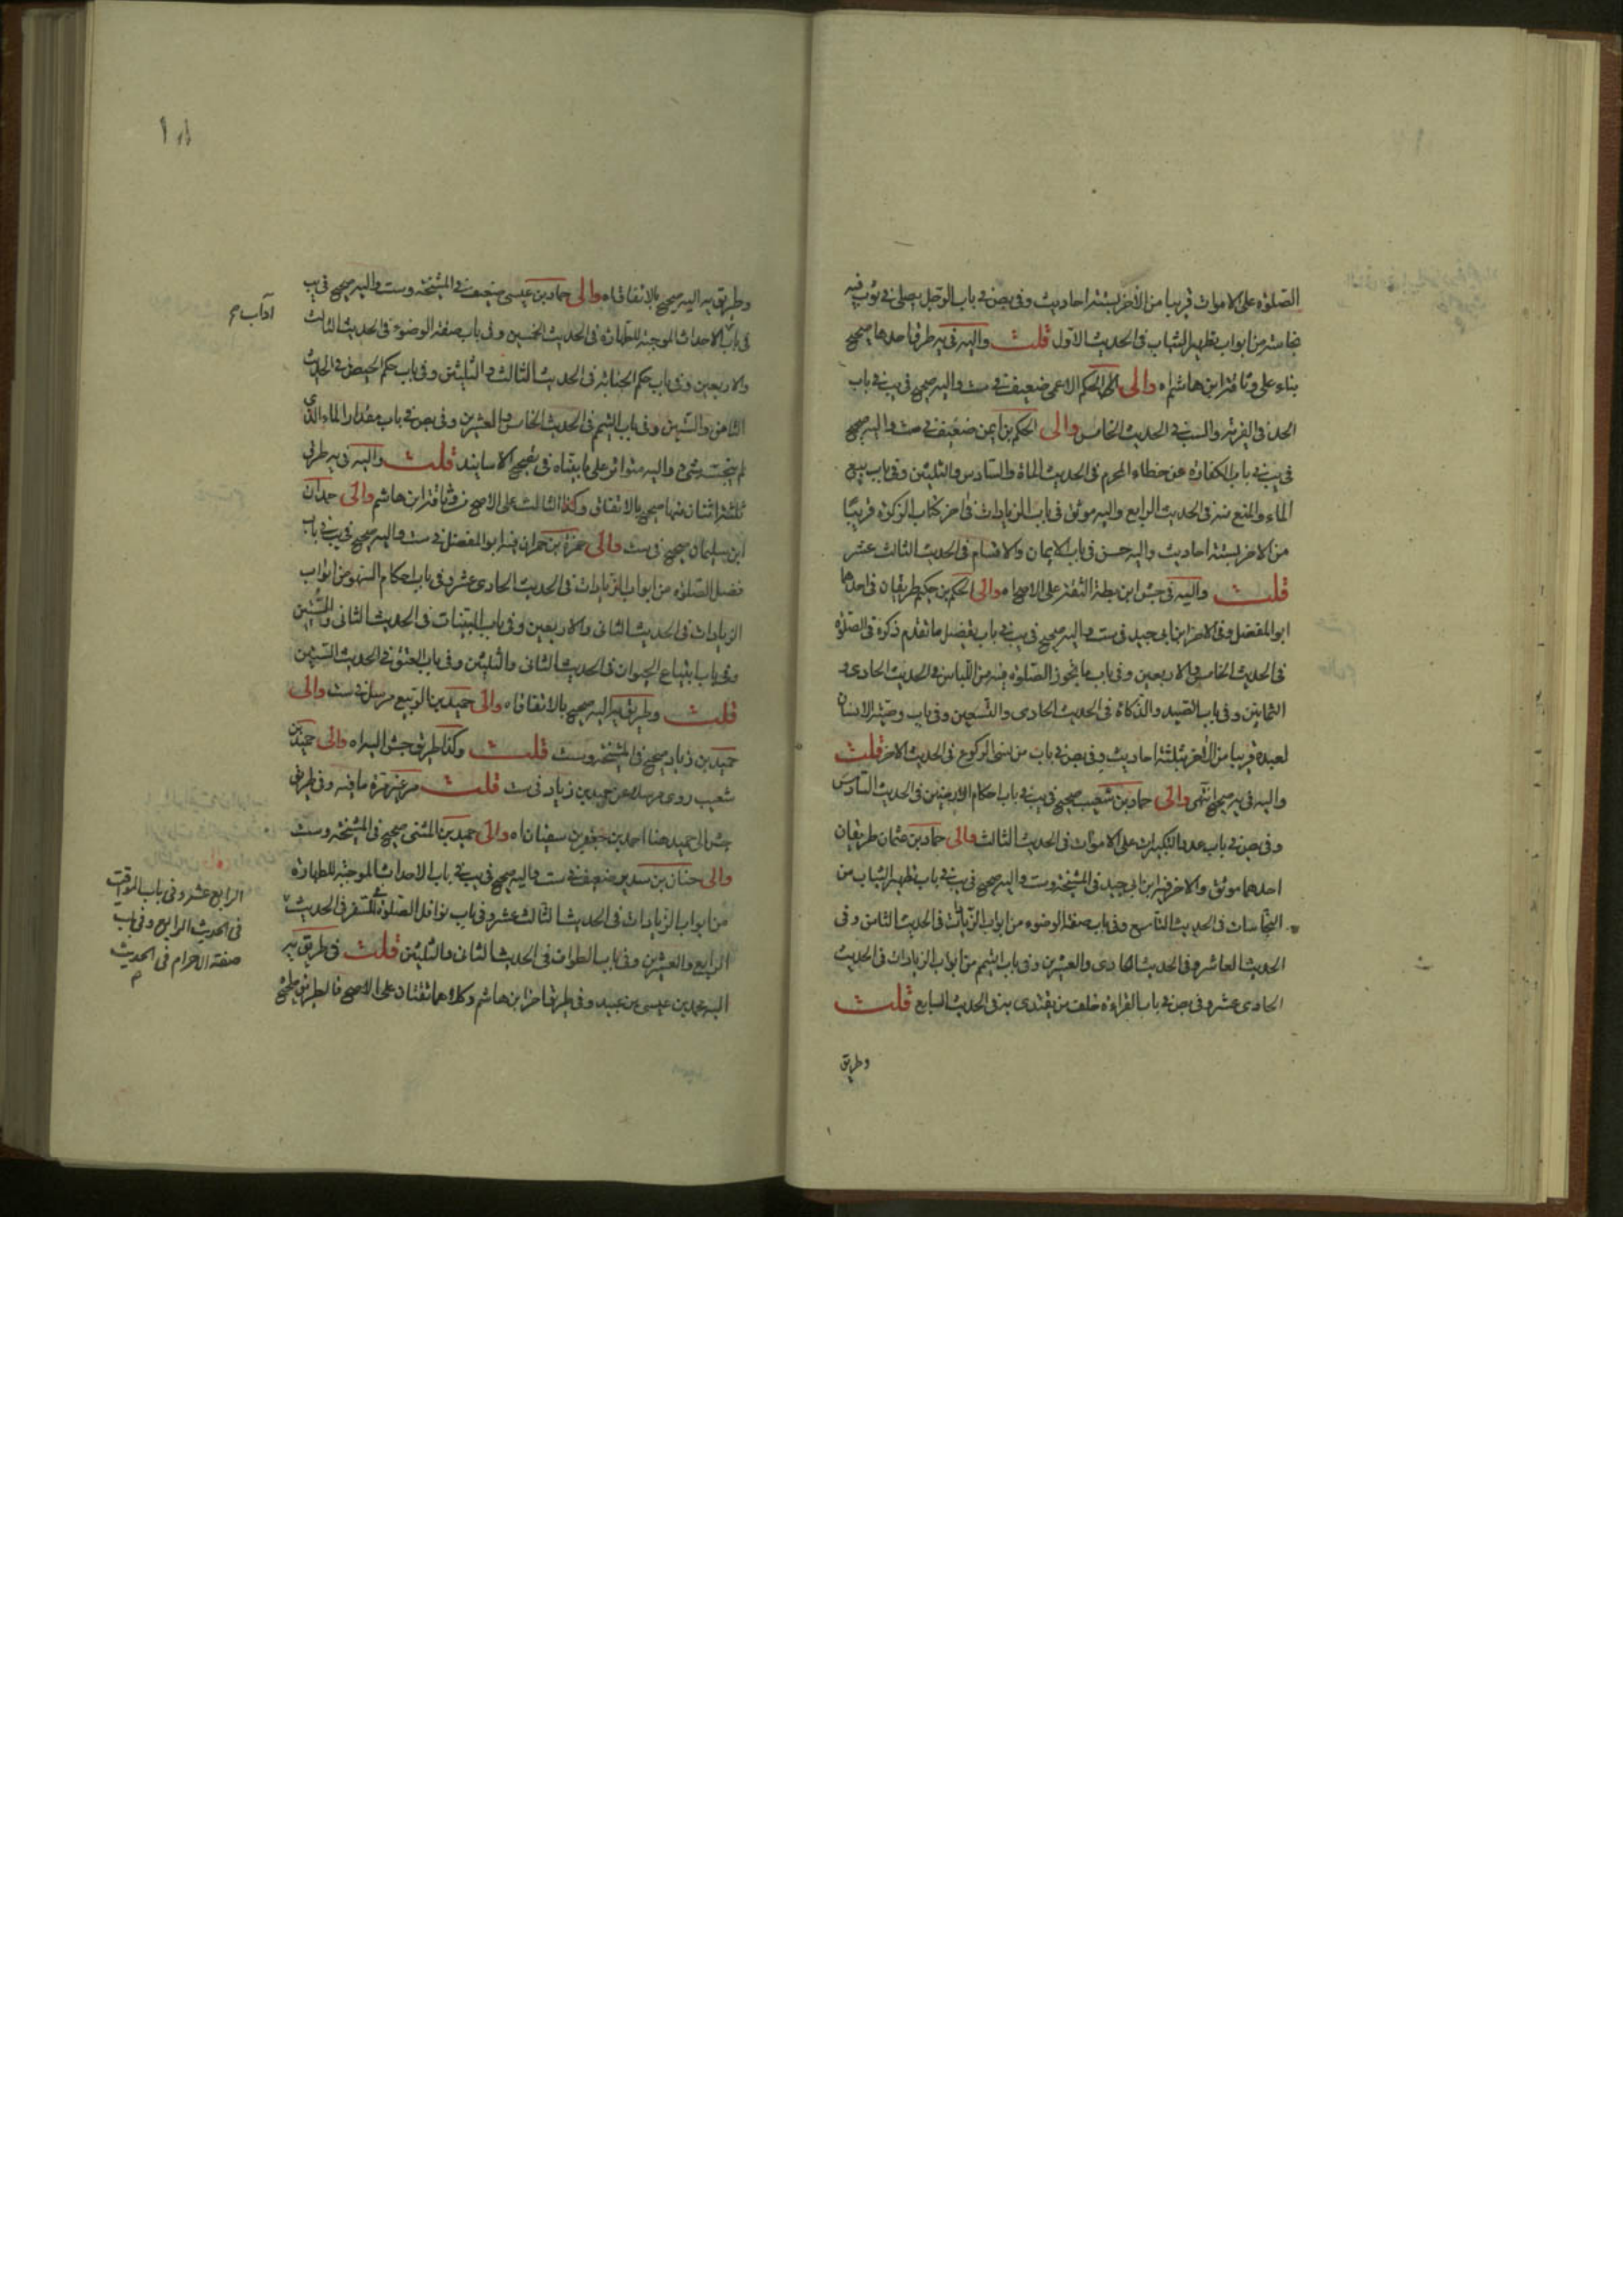 الصلوة على الاموات قريبا من الآخر بستة احاديث وفى بص فى باب الرجل يصلى فى ثوب فيه
نجاسة من ابواب تطهير الثياب فى الحديث الاول قلت واليه فى يه طرق احدها صحيح
بناء على وثاقة ابن هاشم اه والى الحكم الاعمى ضعيف فى ست واليه صحيح فى يب فى باب
الحد فى الفرية والسب فى الحديث الخامس والى الحكم بن ايمن ضعيف فى ست واليه صحيح
فى يب فى باب الكفارة عن خطاء المحرم فى الحديث المأة والسادس والثلثين وفى باب بيع
الماء والمنع منه فى الحديث الرابع واليه موثق فى باب الزيادات فى اخر كتاب الزكوة قريبًا
من الاخر بستة احاديث واليه حسن فى باب الايمان والاقسام فى الحديث الثالث عشر
قلت واليه فى جش ابن بطة الثقة على الاصح اه والى الحكم بن حكيم طريقان فى احدهما
ابو المفضل وفى الاخر ابن ابى جيد فى ست واليه صحيح فى يب فى باب تفصيل ما تقدم ذكره فى الصلوة
فى الحديث الخامس والاربعين وفى باب ما يجوز الصلوة فيه من اللباس فى الحديث الحادى و
الثمانين وفى باب الصيد والذكاة فى الحديث الحادى والتسعين وفى باب وصية الانسان
لعبده قريبا من الآخر بثلثة احاديث وفى بص فى باب من نسى الركوع فى الحديث الاخر قلت
واليه فى يه صحيح انتهى والى حماد بن شعيب صحيح فى يب فى باب احكام الارضين فى الحديث السادس
وفى بص فى باب عدد التكبيرات على الاموات فى الحديث الثالث والى حماد بن عثمان طريقان
احدهما موثق والاخر فيه ابن ابى جيد فى المشيخة وست واليه صحيح فى يب فى باب تطهير الثياب من
النجاسات فى الحديث التاسع وفى باب صفة الوضوء من ابواب الزيادات فى الحديث الثامن وفى
الحديث العاشر وفى الحديث الحادى والعشرين وفى باب التيمم من ابواب الزيادات فى الحديث
الحادى عشر وفى بص فى باب القراءة خلف من يقتدى به فى الحديث السابع قلت
وطريق
وطريق يه اليه صحيح بالاتفاق اه والى حماد بن عيسى ضعيف فى المشيخة وست واليه صحيح فى يب
آداب
فى باب الاحداث الموجبة للطهارة فى الحديث الخمسين وفى باب صفة الوضوء فى الحديث الثالث
والاربعين وفى باب حكم الجنابة فى الحديث الثالث والثلثين وفى باب حكم الحيض فى الحديث
الثامن والستين وفى باب التيمم فى الحديث الخامس والعشرين وفى بص فى باب مقدار الماء الذى
لم ينجسه شىء واليه متواتر على ما بيناه فى تصحيح الاسانيد قلت واليه فى يه طرق
ثلثة اثنان منها صحيح بالاتفاق وكذا الثالث على الاصح من وثاقة ابن هاشم والى حمدان
ابن سليمان صحيح فى ست والى حمزة بن حمران فيه ابو المفضل فى ست واليه صحيح فى يب فى باب
فضل الصلوة من ابواب الزيادات فى الحديث الحادى عشر وفى باب احكام السهو من ابواب
الزيادات فى الحديث الثانى والاربعين وفى باب البينات فى الحديث الثانى والستين
وفى باب ابتياع الحيوان فى الحديث الثانى والثلثين وفى باب العتق فى الحديث الستين
قلت وطريق يه اليه صحيح بالاتفاق اه والى حميد بن الربيع مرسل فى ست والى
حميد بن زياد صحيح فى المشيخة وست قلت وكذا طريق جش اليه اه والى حميد بن
شعيب روى مرسلا عن حميد بن زياد فى ست قلت مر غير مرة ما فيه وفى طريق
جش الى حميد هنا احمد بن جعفر بن سفيان اه والى حميد بن المثنى صحيح فى المشيخة وست
والى حنان بن سدير ضعيف فى ست واليه صحيح فى يب فى باب الاحداث الموجبة للطهارة
من ابواب الزيادات فى الحديث الثالث عشر وفى باب نوافل الصلوة فى السفر فى الحديث
الرابع والعشرين وفى باب الطواف فى الحديث الثانى والثلثين قلت فى طريق يه
اليه محمد بن عيسى بن عبيد وفى طريق اخر ابن هاشم وكلاهما ثقتان على الاصح فالطريق صحيح
الرابع عشر وفى باب المواقيت
فى الحديث الرابع وفى باب
صفة الاحرام فى الحديث